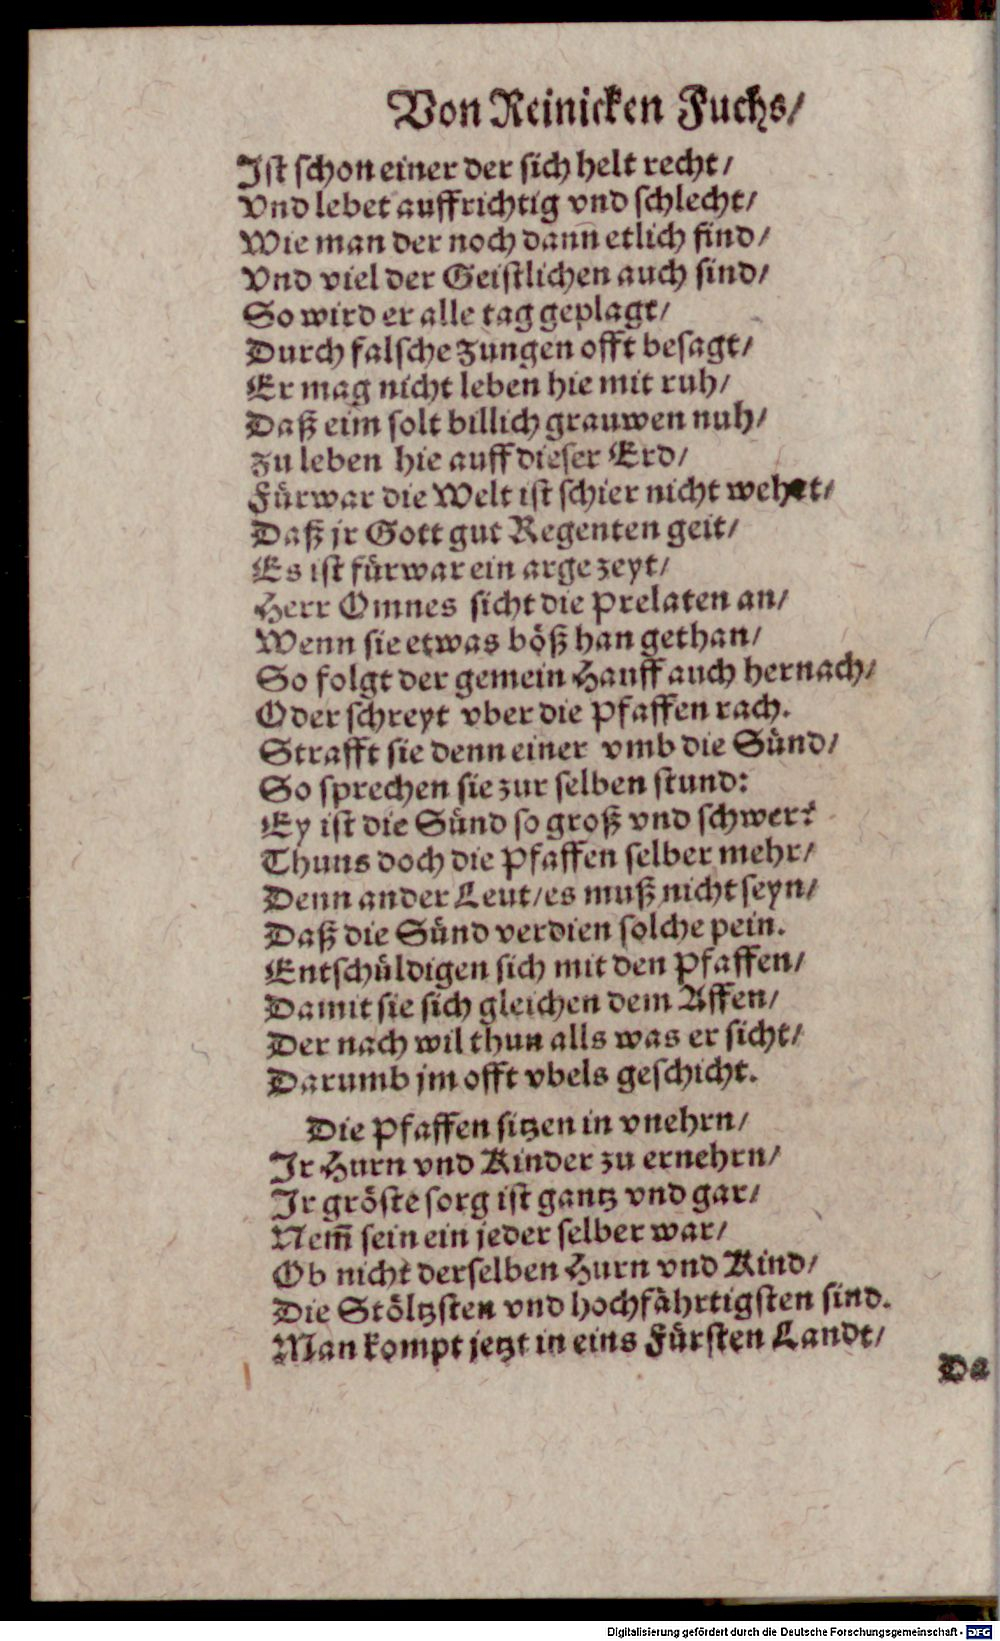 Von Reinicken Fuchs/
Ist schon einer der sich helt recht/
Vnd lebet auffrichtig vnd schlecht/
Wie man der noch dañ etlich find/
Vnd viel der Geistlichen auch sind/
So wird er alle tag geplagt/
Durch falsche Zungen offt besagt/
Er mag nicht leben hie mit ruh/
Daß eim solt billich grauwen nuh/
Zu leben hie auff dieser Erd/
Fürwar die Welt ist schier nicht wehrt/
Daß jr Gott gut Regenten geit/
Es ist fürwar ein arge zeyt/
Herr Omnes sicht die Prelaten an/
Wenn sie etwas böß han gethan/
So folgt der gemein Hauff auch hernach/
Oder schreyt vber die Pfaffen rach.
Strafft sie denn einer vmb die Sünd/
So sprechen sie zur selben stund:
Ey ist die Sünd so groß vnd schwer?
Thuns doch die Pfaffen selber mehr/
Denn ander Leut/es muß nicht seyn/
Daß die Sünd verdien solche pein.
Entschüldigen sich mit den Pfaffen/
Damit sie sich gleichen dem Affen/
Der nach wil thun alls was er sicht/
Darumb jm offt vbels geschicht.
Die Pfaffen sitzen in vnehrn/
Ir Hurn vnd Kinder zu ernehrn/
Ir gröste sorg ist gantz vnd gar/
Nem̃ sein ein jeder selber war/
Ob nicht derselben Hurn vnd Kind/
Die Stöltzsten vnd hochfährtigsten sind.
Man kompt jetzt in eins Fürsten Landt/
Da
Digitalisierung gefördert durch die Deutsche Forschungsgemeinschaft - DFG